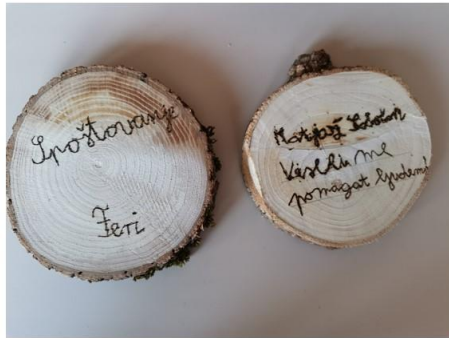 Spoštovanje
Feri
Matjaž
Veseli me
pomagat ljudem